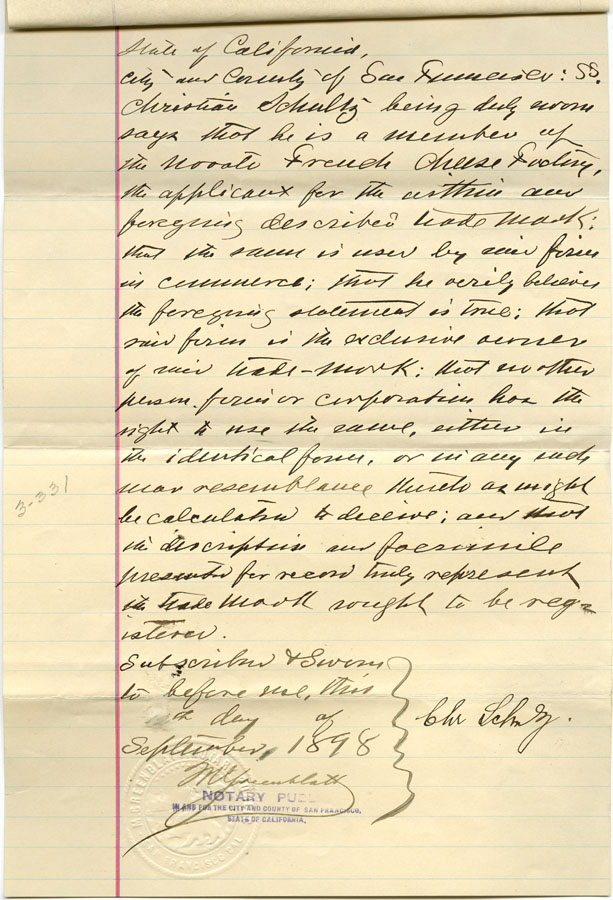 State of California,
City and County of San Francisco: SS.
Christian Schultz being duly sworn
says that he is a member of
the Novato French Cheese Factory,
the applicant for the within and
foregoing described trade mark;
that the same is used by said firm
in commerce; that he verily believes
the foregoing statement is true; that
said firm is the exclusive owner
of said trade-mark; that no other
person, firm or corporation has the
right to use the same, either in
the identical form, or in any such
near resemblance thereto as might
be calculated to deceive; and that
the description and facsimile
presented for record truly represent
the trade mark sought to be reg-
istered.
Subscribed & Sworn
to before me, this
th day of
September, 1898
Chr Schultz.
3-331
NOTARY PUBLIC
IN AND FOR THE CITY AND COUNTY OF SAN FRANCISCO,
STATE OF CALIFORNIA.